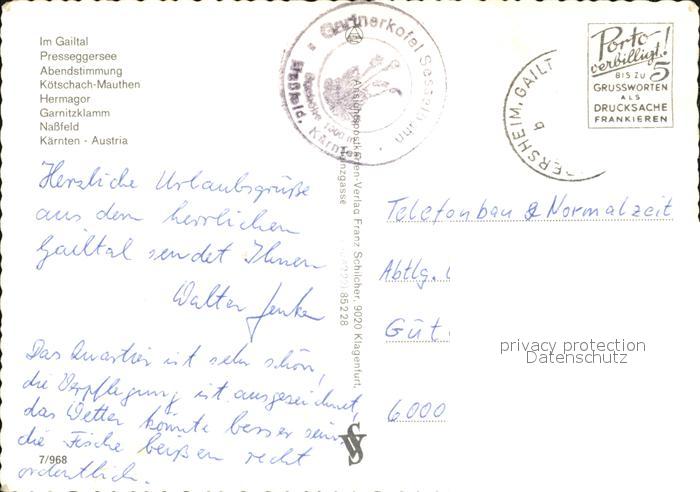 Im Gailtal
Presseggersee
Abendstimmung
Kötschach-Mauthen
Hermagor
Garnitzklamm
Naßfeld
Kärnten - Austria
Gartnerkofel Sesselbahn
Naßfeld,
Kärnten
Porto
verbilligt!
BIS ZU 5
GRUSSWORTEN
ALS
DRUCKSACHE
FRANKIEREN
ERSHEIM, GAILT
b
Herzliche Urlaubsgrüße
aus dem herrlichen
Gailtal sendet Ihnen
Walter
Das Quartier ist sehr schön,
die Verpflegung ist ausgezeichnet,
das Wetter könnte besser sein,
die Fische beißen recht
ordentlich.
7/968
Ansichtspostkarten-Verlag Franz Schilcher, 9020 Klagenfurt,
nzgasse
85228
Telefonbau & Normalzeit
Abtlg.
Güt
6000
privacy protection
Datenschutz